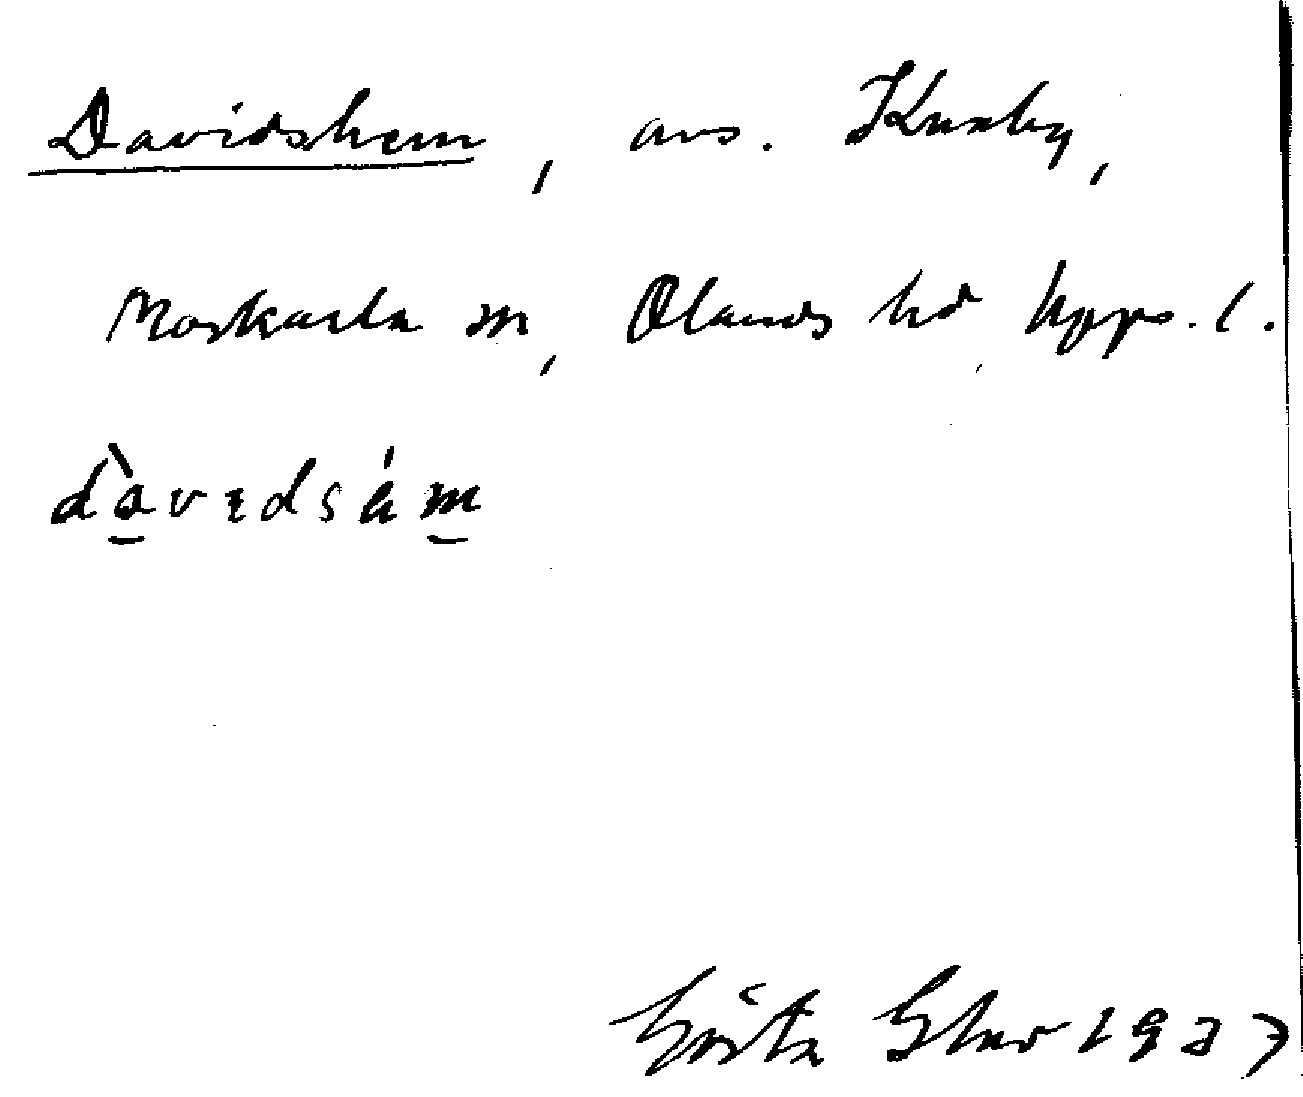 Davidshem, avs. Knaby,
Morkarla sn, Olands hd, Upps. l.
dàvedsám
Gösta 1937